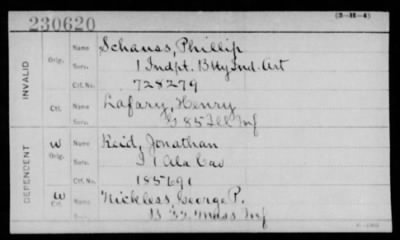 230620 (3-H-4)
INVALID
Orig. Name Schauss, Phillip
Serv. 1 Indpt. Bty Ind. Art
Ctf. No. 728279
Ctf. Name Lafary, Henry
Serv. G 85 Ill Inf
DEPENDENT
W Orig. Name Reid, Jonathan
Serv. I 1 Ala Cav
Ctf. No. 185691
W Ctf. Name Nickless, George P.
Serv. B 32 Mass Inf